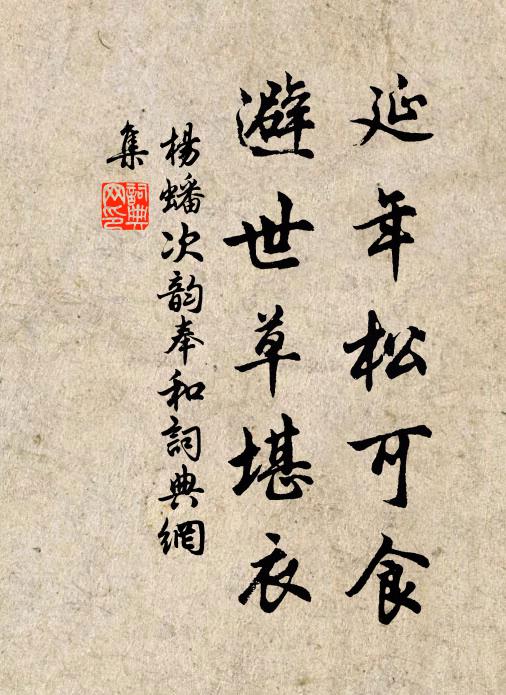 延年松可食
避世草堪衣
楊蟠次韵奉和詞典網
集
詞典
网印